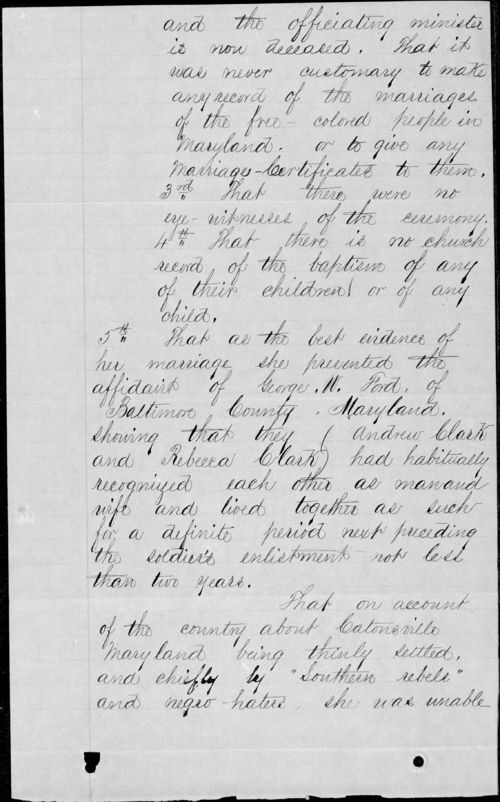 and the officiating minister
is now deceased. That it
was never customary to make
any record of the marriages
of the free-colored people in
Maryland. or to give any
Marriage-Certificates to them.
3rd That there were no
eye-witnesses of the ceremony.
4th That there is no church
record of the baptism of any
of their children or of any
child.
5th That as the best evidence of
her marriage she presented the
affidavit of George. W. Ford. of
Baltimore County. Maryland.
showing that they (Andrew Clark
and Rebecca Clark) had habitually
recognized each other as man and
wife and lived together as such
for a definite period next preceding
the soldier's enlistment not less
than two years.
That on account
of the country about Catonsville
Maryland being thinly settled,
and chiefly by "Southern rebels"
and negro-haters, she was unable